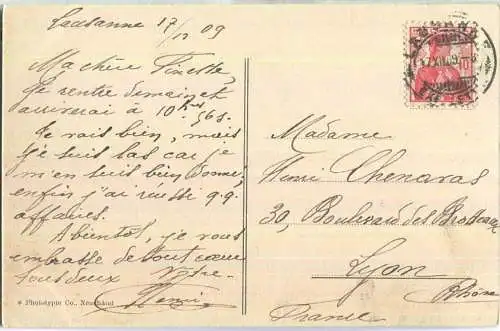 Lausanne 17/12 09
Ma chère Finette,
Je rentre demain et
arriverai à 10 hres 56 s.
Je vais bien, mais
je suis las car je
m'en suis bien donné,
enfin j'ai réussi q.q.
affaires.
A bientôt, je vous
embrasse de tout cœur
tous deux Votre
Henri
* Phototypie Co., Neuchâtel
LAUSANNE
10
Madame
Henri Chenavas
30, Boulevard des Brotteaux
Lyon
Rhône
France